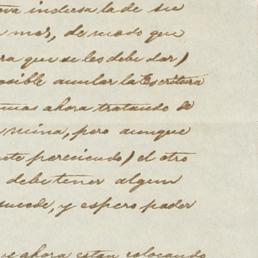 ova inclusa la de su
mar, de modo que
ra que se les debe dar)
posible anular la Escritura
mas ahora tratando de
mina, pero aunque
nte pereciendo) el otro
debe tener algun
sucede, y espero poder
ue ahora estan colocando